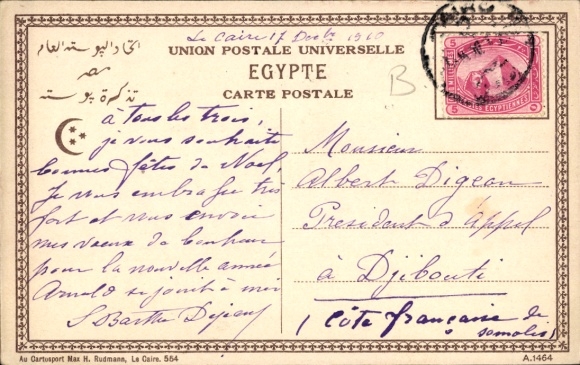 Le Caire 17 Decbre 1910
اتحاد البوسته العام
مصر
تذكرة بوسته
UNION POSTALE UNIVERSELLE
EGYPTE
CARTE POSTALE
B
CAIRO
5 5
MILLIEMES
POSTES EGYPTIENNES
à tous les trois,
je vous souhaite
bonnes fêtes de Noel,
Je vous embrasse très
fort et vous envoie
mes vœux de bonheur
pour la nouvelle année.
Arnold se joint à moi
Monsieur
Albert Digeon
President d'Appel
à Djibouti
(Côte française de
somalis)
Au Cartosport Max H. Rudmann, Le Caire. 554
A.1464